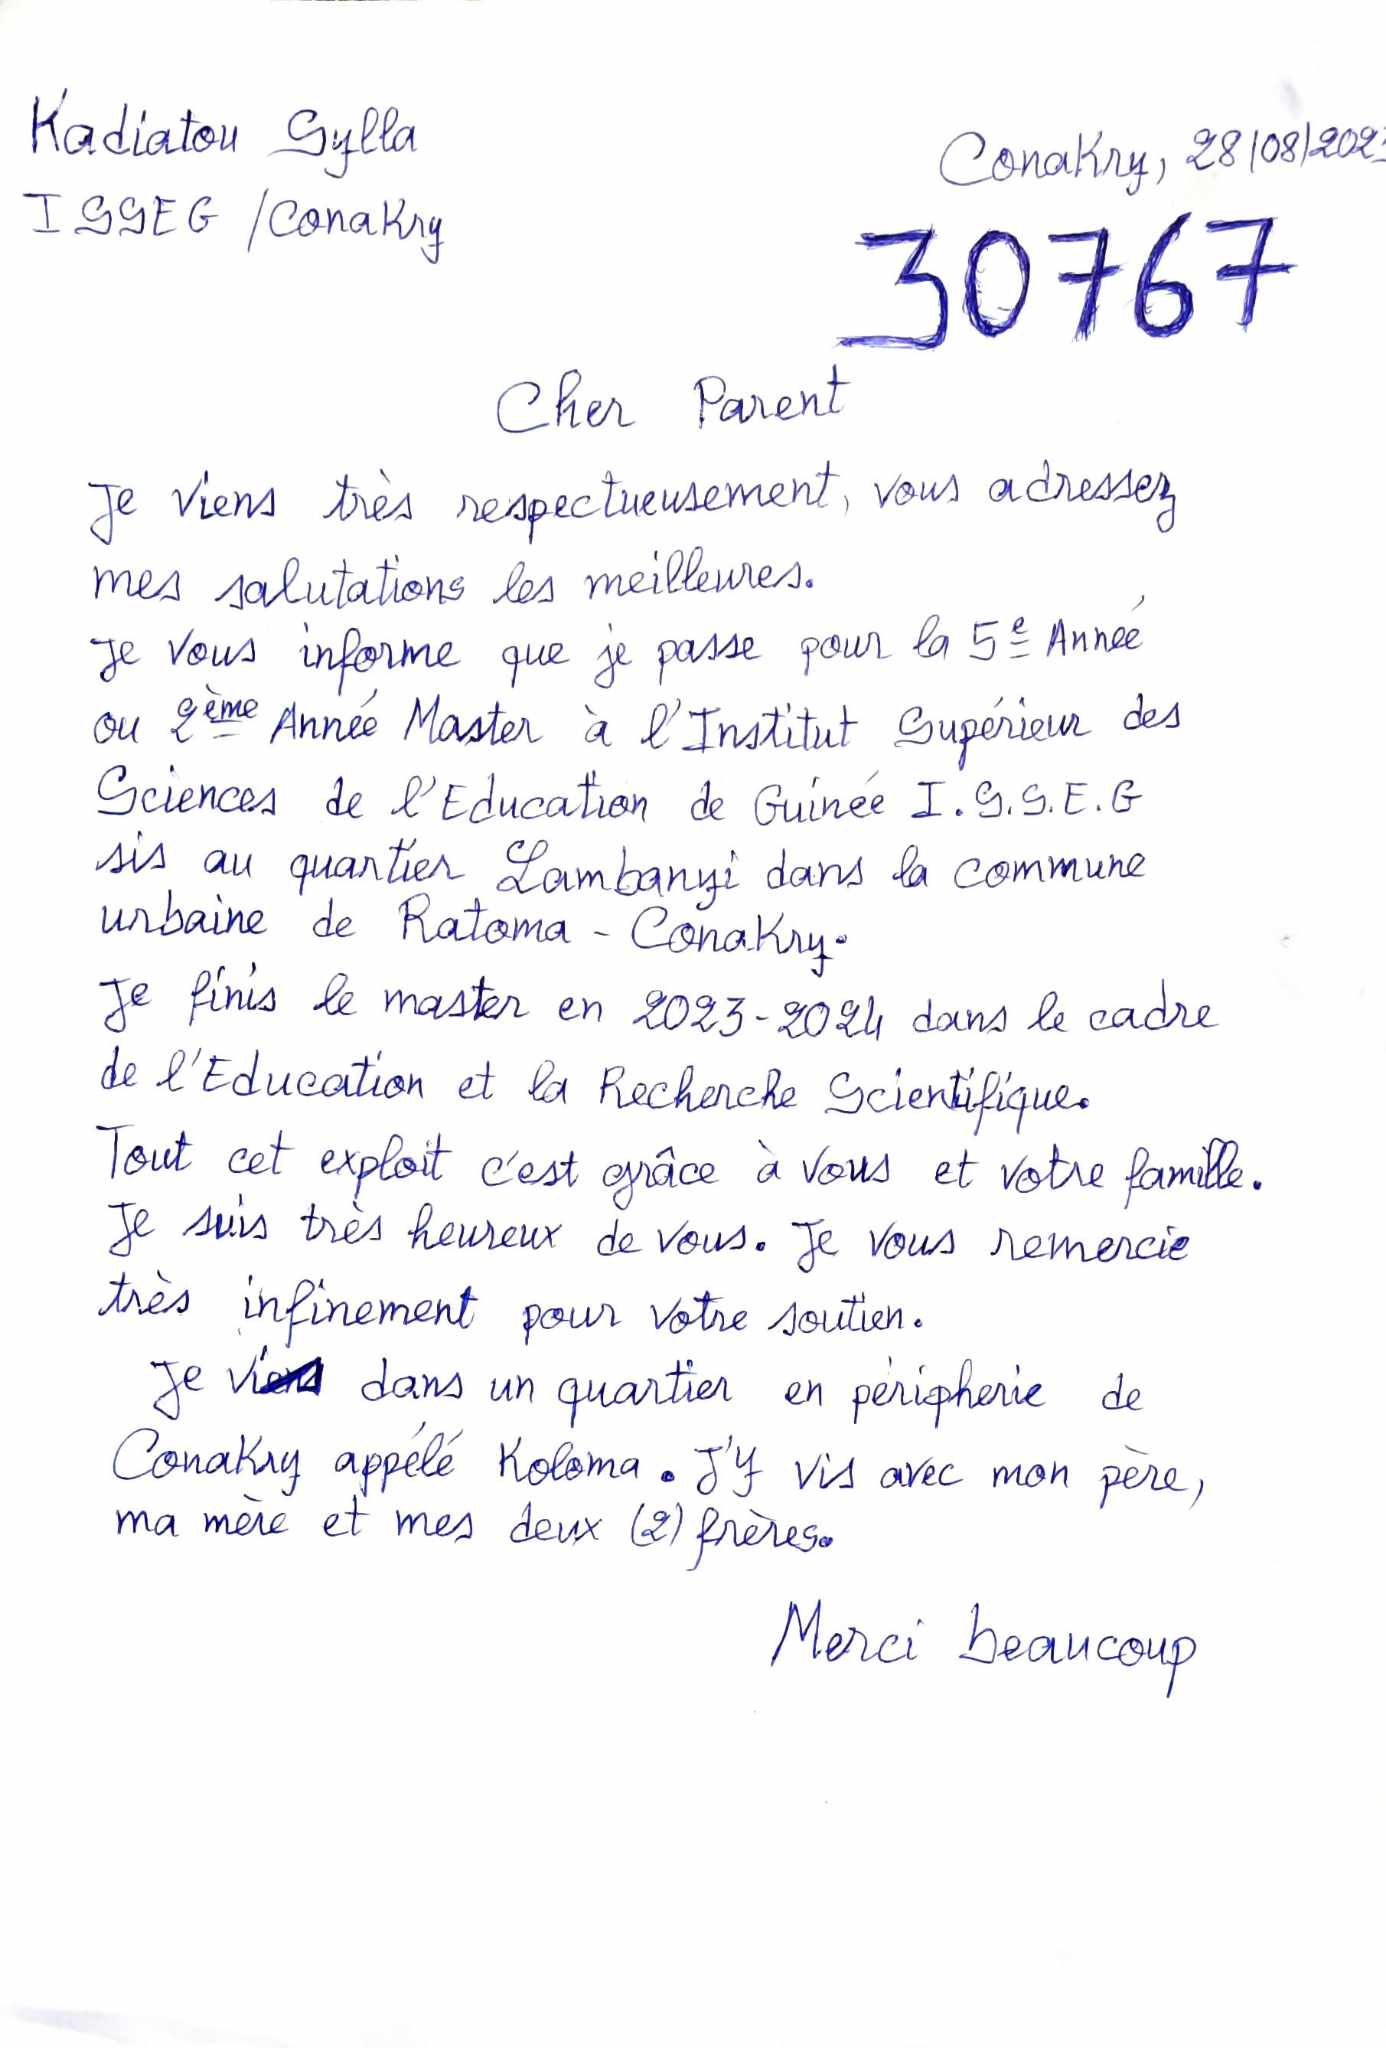 Kadiatou Sylla
ISSEG /Conakry
Conakry, 28/08/202
30767
Cher Parent
Je viens très respectueusement, vous adressez
mes salutations les meilleures.
Je vous informe que je passe pour la 5e Année
ou 2ème Année Master à l'Institut Supérieur des
Sciences de l'Education de Guinée I.S.S.E.G
sis au quartier Lambanyi dans la commune
urbaine de Ratoma - Conakry.
Je finis le master en 2023-2024 dans le cadre
de l'Education et la Recherche Scientifique.
Tout cet exploit c'est grâce à vous et votre famille.
Je suis très heureux de vous. Je vous remercie
très infinement pour votre soutien.
Je dans un quartier en péripherie de
Conakry appélé Koloma. J'Y vis avec mon père,
ma mère et mes deux (2) frères.
Merci beaucoup